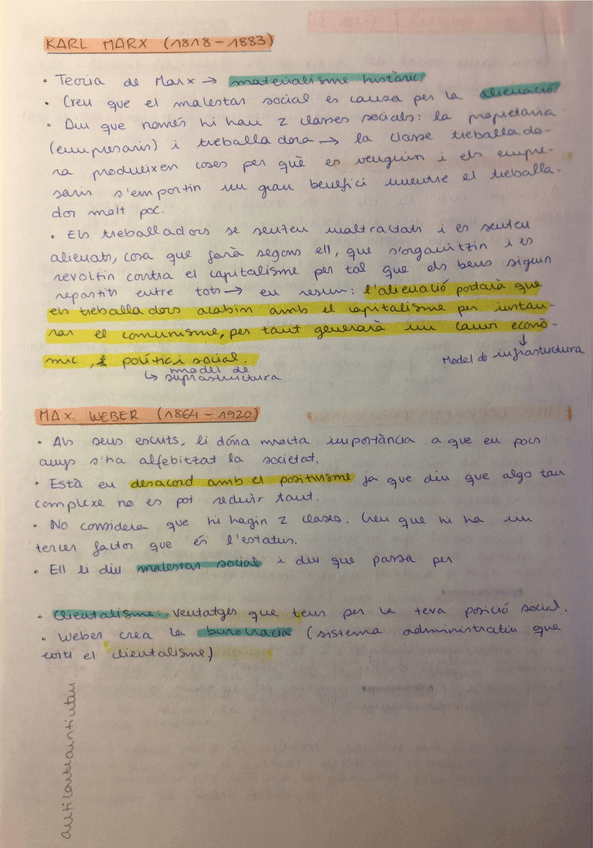 KARL MARX (1818-1883)
• Teoria de Marx → materialisme històric
• Creu que el malestar social es causa per la alienació
• Diu que només hi han 2 classes socials: la propietaria
(empresaris) i treballadora → la classe treballado-
ra produeixen coses per què es venguin i els empre-
saris s'emportin un gran benefici mentre el treballa-
dor molt poc.
• Els treballadors se senten maltractats i es senten
alienats, cosa que farà segons ell, que s'organitzin i es
revoltin contra el capitalisme per tal que els bens siguin
repartits entre tots → en resum: l'alienació portarà que
els treballadors acabin amb el capitalisme per instau-
rar el comunisme, per tant generarà un canvi econò-
mic, polític i social.
↳ model de suprastructura
↓ Model de infrastuctura
MAX WEBER (1864-1920)
• Als seus escrits, li dóna molta importància a que en pocs
anys s'ha alfebitzat la societat.
• Està en desacord amb el positivisme ja que diu que algo tan
complexe no es pot reduir tant.
• No considera que hi hagin 2 classes. Creu que hi ha un
tercer factor que és l'estatus.
• Ell li diu malestar social i diu que passa per
• Clientalisme: Ventatges que tens per la teva posició social.
• Weber crea la burocràcia (sistema administratiu que
eviti el clientalisme)